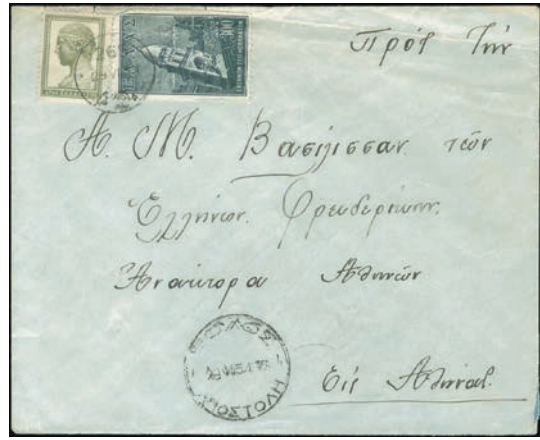 ΕΛΛΑΣ
Πρός Τήν
Α. Μ. Βασίλισσαν τῶν
Ἑλλήνων. Φρευδερίκην.
Ἀνάκτορα Ἀθηνῶν
ΒΟΛΟΣ
ΑΠΟΣΤΟΛΗ
Εἰς Ἀθήνας.